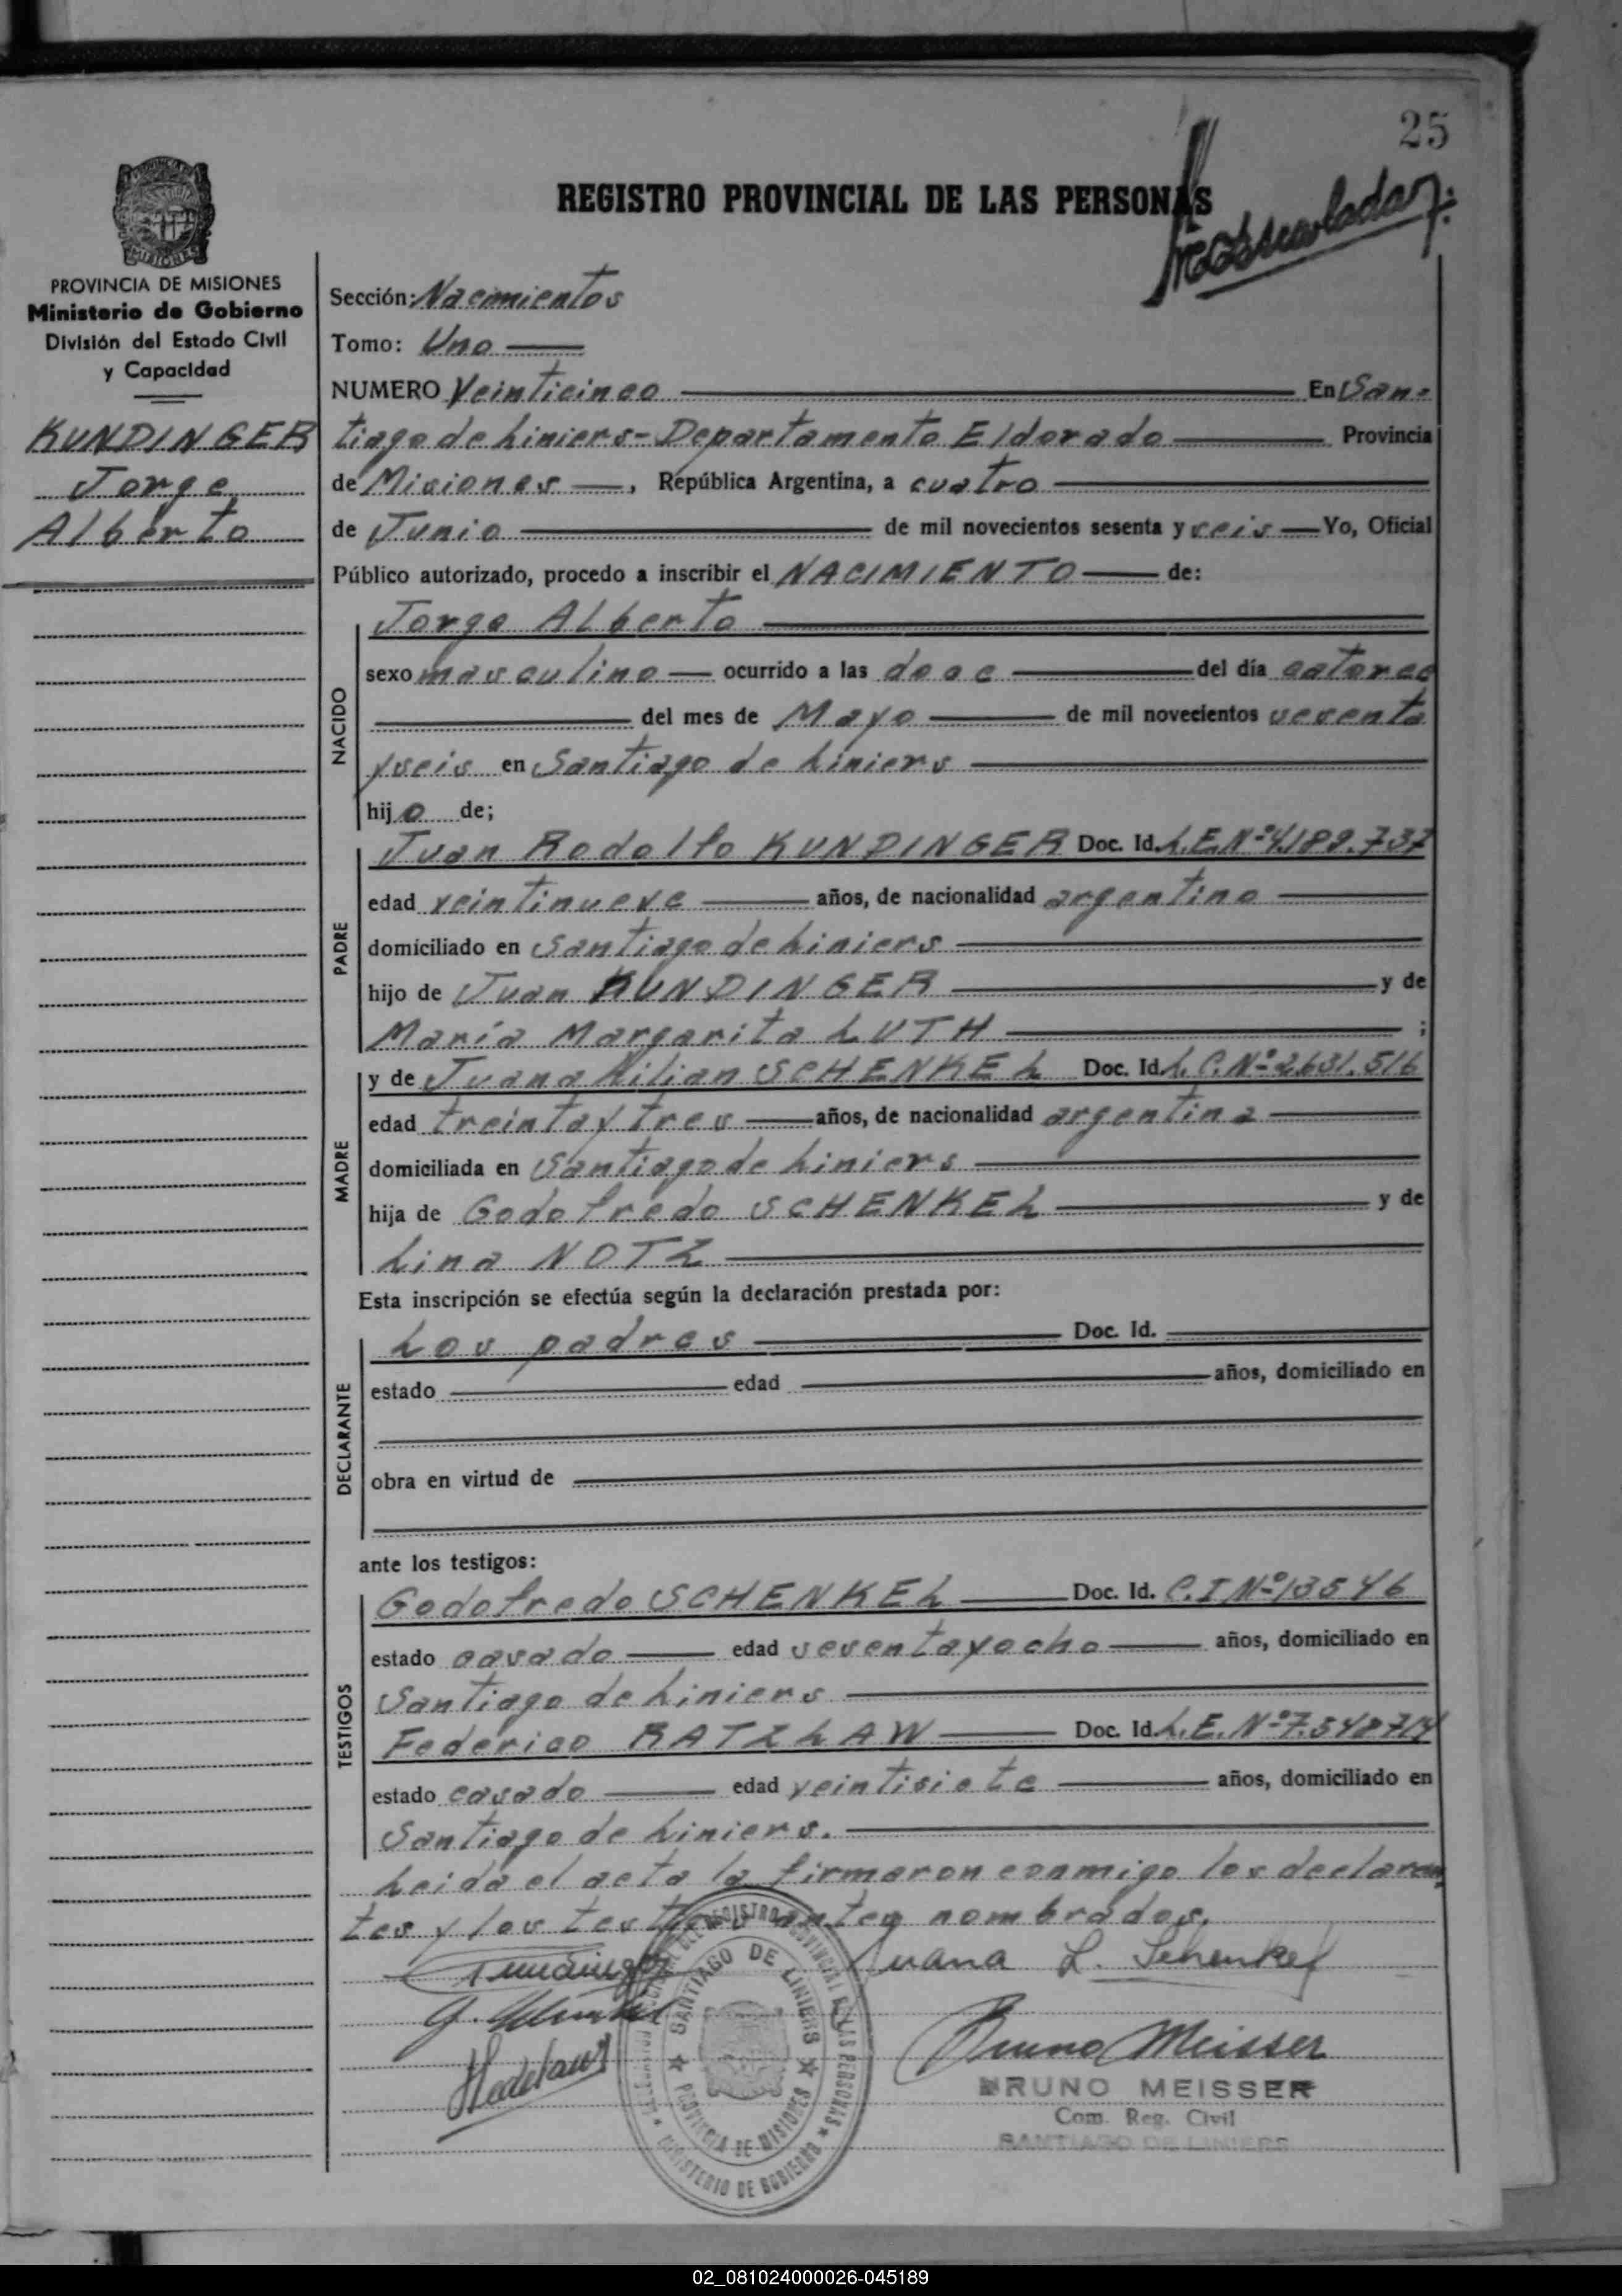 25
REGISTRO PROVINCIAL DE LAS PERSONAS
MISIONES
PROVINCIA DE MISIONES
Ministerio de Gobierno
División del Estado Civil
y Capacidad
KUNDINGER
Jorge
Alberto
Sección: Nacimientos
Tomo: Uno
NUMERO Veinticinco En San-
tiago de Liniers - Departamento Eldorado Provincia
de Misiones, República Argentina, a cuatro
de Junio de mil novecientos sesenta y seis Yo, Oficial
Público autorizado, procedo a inscribir el NACIMIENTO de:
NACIDO
Jorge Alberto
sexo masculino ocurrido a las doce del día catorce
del mes de Mayo de mil novecientos sesenta
y seis en Santiago de Liniers
hijo de;
PADRE
Juan Rodolfo KUNDINGER Doc. Id. L.E.Nº 4.189.737
edad veintinueve años, de nacionalidad argentino
domiciliado en Santiago de Liniers
hijo de Juan KUNDINGER y de
María Margarita LUTH ;
MADRE
y de Juana Lilian SCHENKEL Doc. Id. L.C.Nº 2.631.516
edad treinta y tres años, de nacionalidad argentina
domiciliada en Santiago de Liniers
hija de Godofredo SCHENKEL y de
Lina NOTZ
Esta inscripción se efectúa según la declaración prestada por:
DECLARANTE
Los padres Doc. Id.
estado edad años, domiciliado en
obra en virtud de
ante los testigos:
TESTIGOS
Godofredo SCHENKEL Doc. Id. C.I Nº 13546
estado casado edad sesenta y ocho años, domiciliado en
Santiago de Liniers
Federico RATZLAW Doc. Id. L.E. Nº 7.548714
estado casado edad veintisiete años, domiciliado en
Santiago de Liniers.
Leida el acta la firmaron conmigo los declaran
tes y los testigos antes nombrados.
Juana L. Schenkel
Bruno Meisser
BRUNO MEISSER
Com. Reg. Civil
SANTIAGO DE LINIERS
SANTIAGO DE LINIERS
PROVINCIA DE MISIONES
REGISTRO PROVINCIAL DE LAS PERSONAS
MINISTERIO DE GOBIERNO
02_081024000026-045189